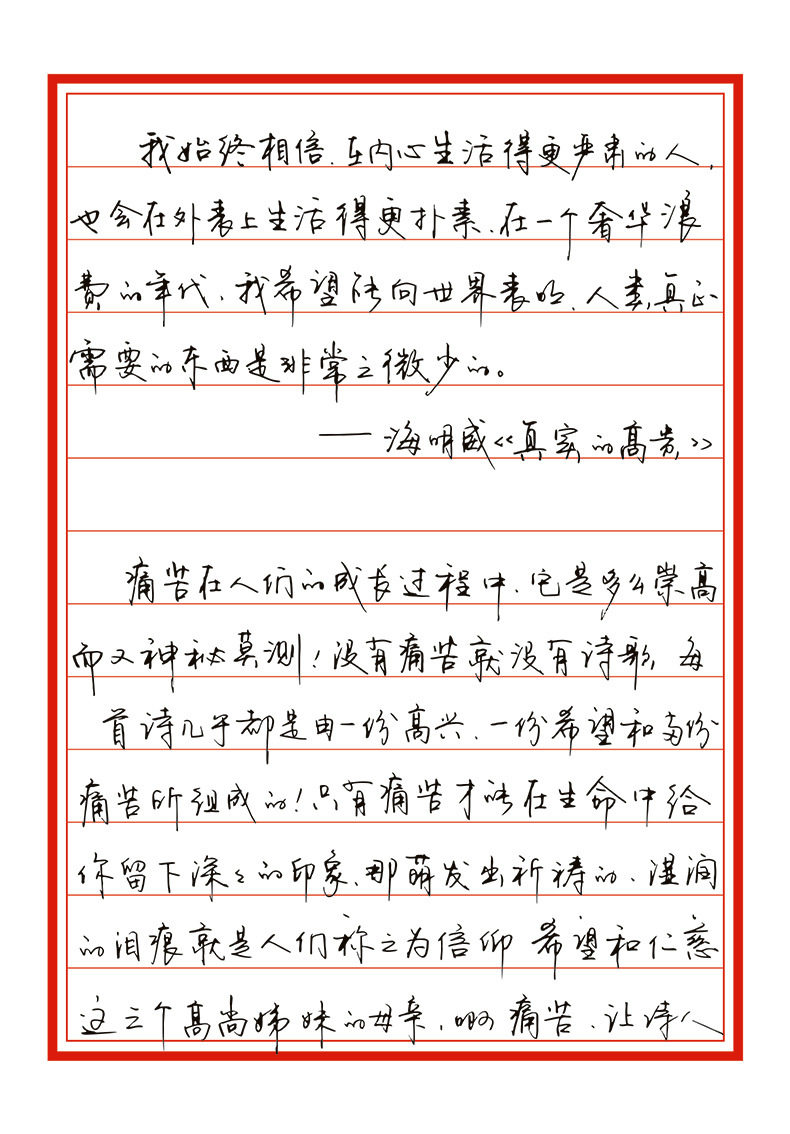 我始终相信、在内心生活得更严肃的人，
也会在外表上生活得更扑素、在一个奢华浪
费的年代、我希望能向世界表明、人类真正
需要的东西是非常之微少的。
——海明威《真实的高贵》
痛苦在人们的成长过程中、它是多么崇高
而又神秘莫测！没有痛苦就没有诗歌，每
首诗几乎都是由一份高兴、一份希望和两份
痛苦所组成的！只有痛苦才能在生命中给
你留下深々的印象、那萌发出祈祷的、湿润
的泪痕就是人们称之为信仰 希望和仁慈
这三个高尚姊妹的母亲、啊 痛苦、让诗人